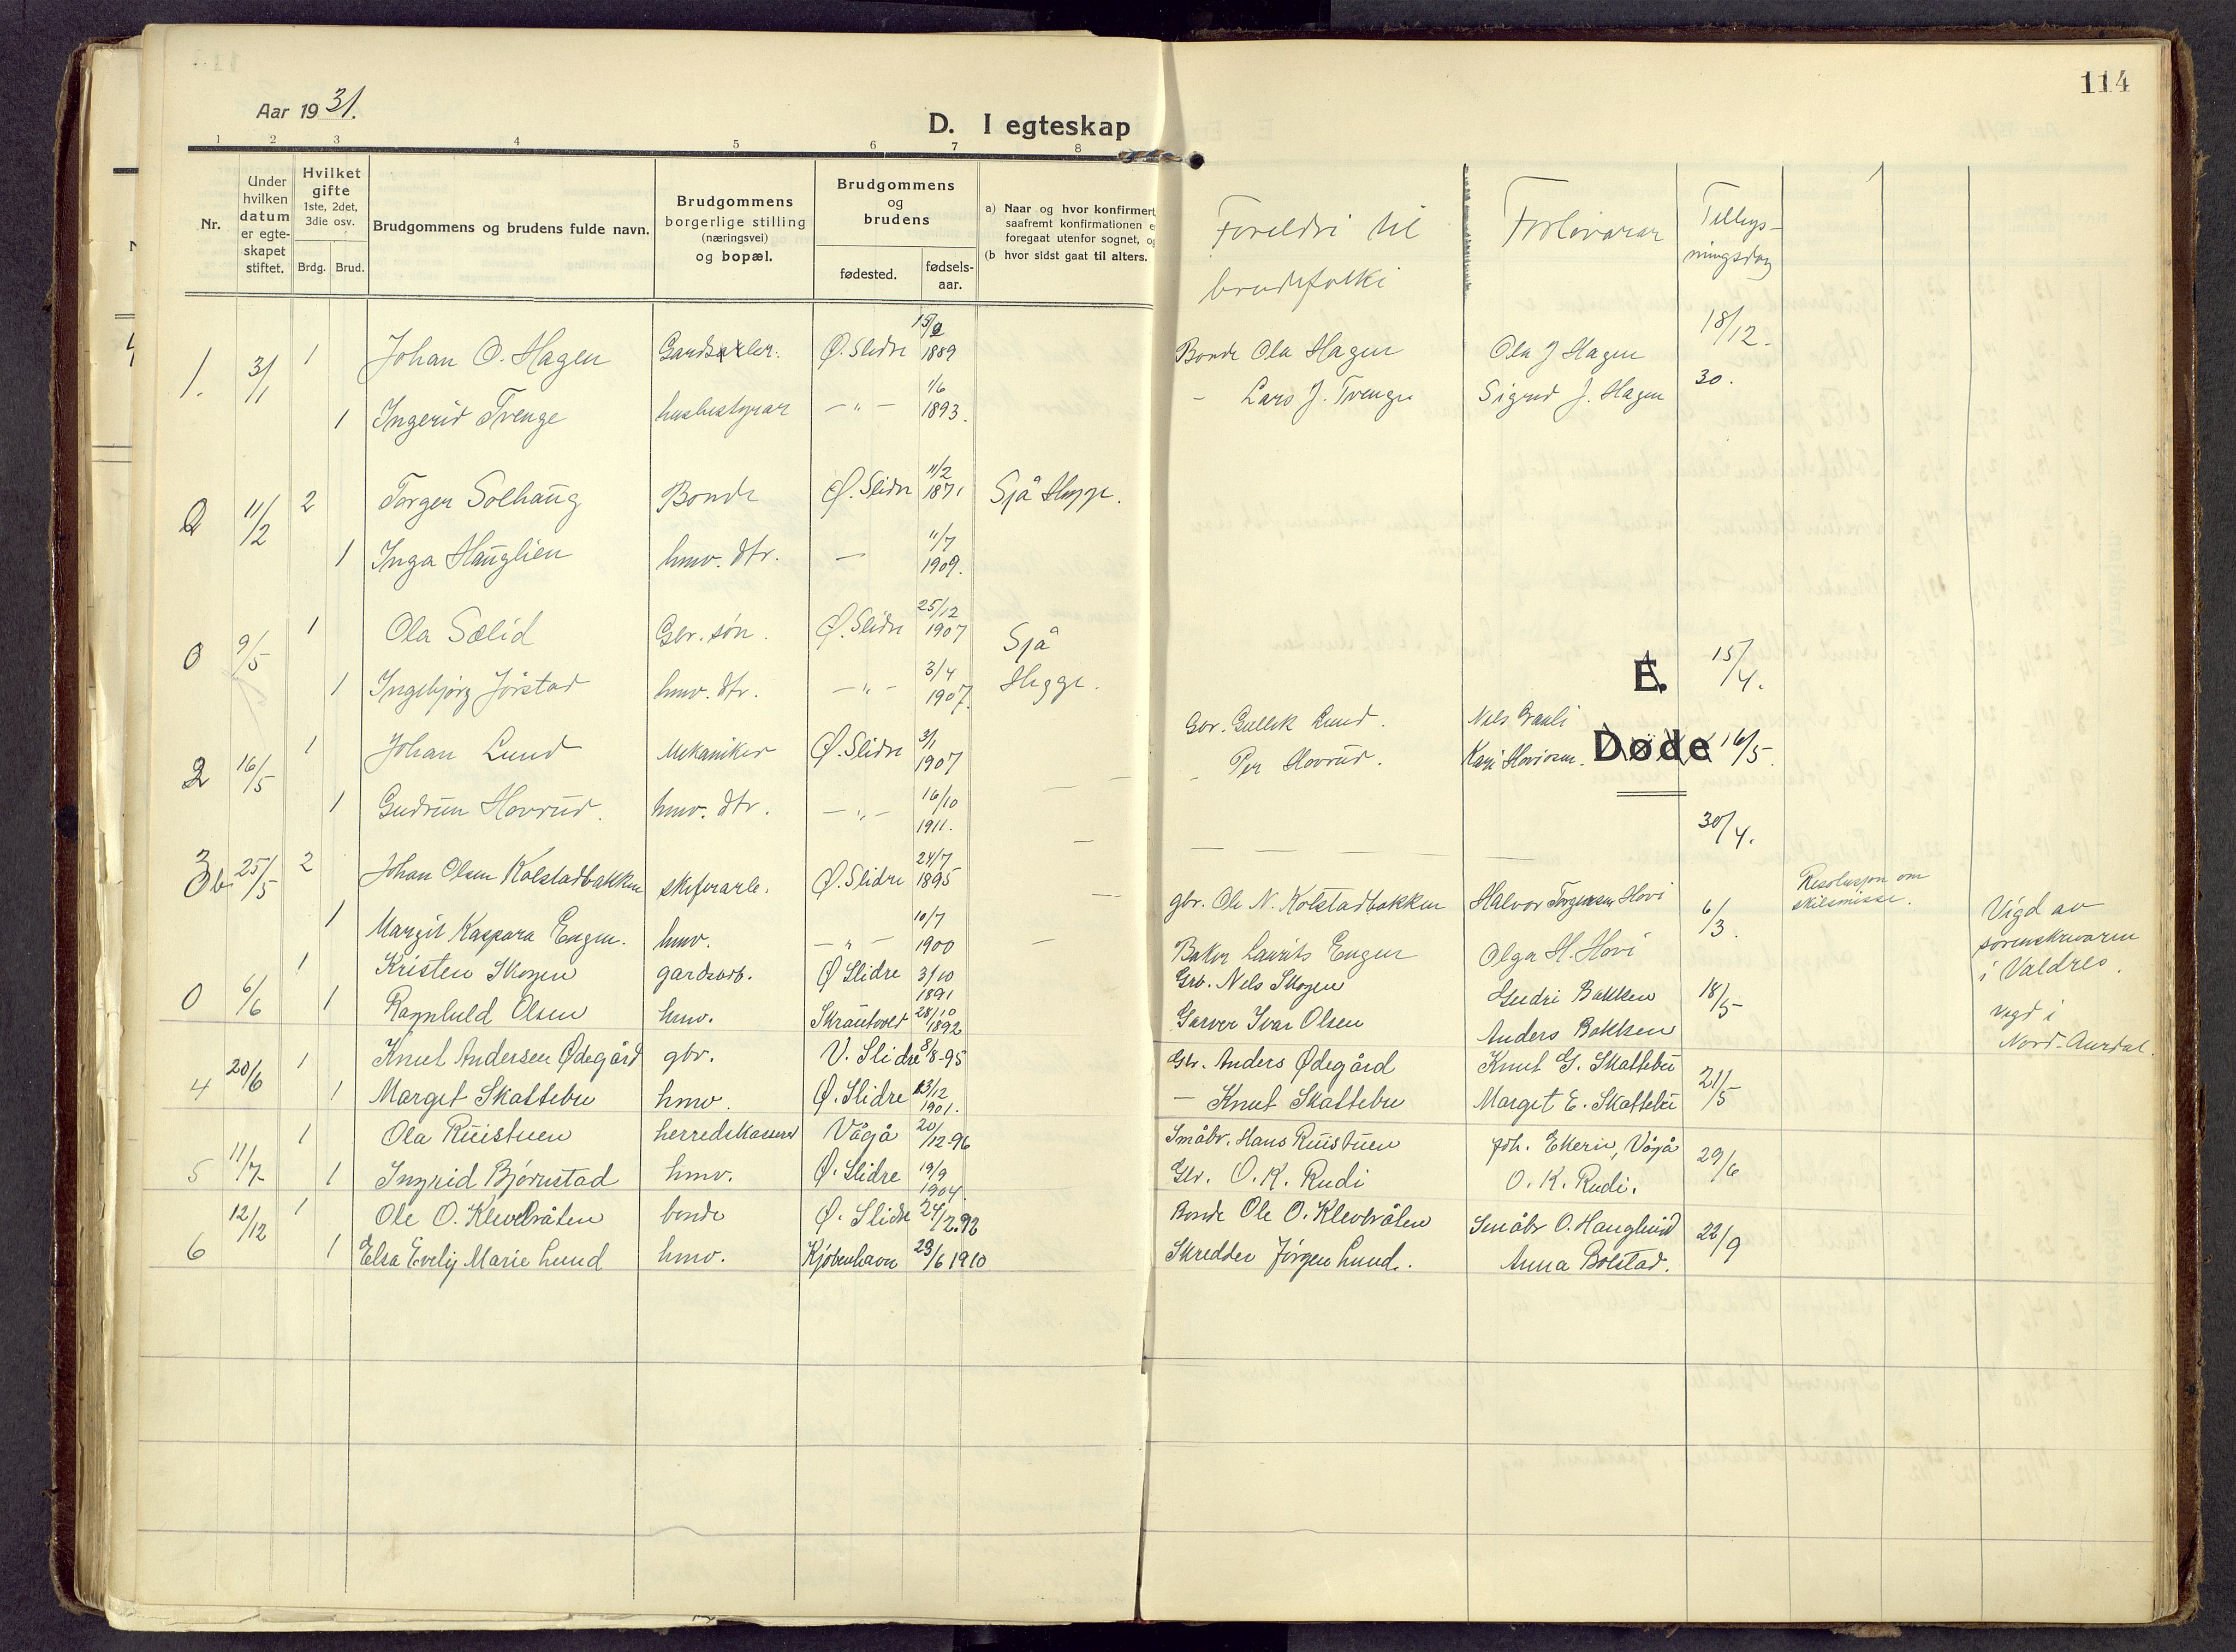 114
Aar 1931.
D. I egteskap
1 2 3 4 5 6 7 8
Nr.
Under hvilken datum er egte-skapet stiftet.
Hvilket gifte
1ste, 2det, 3die osv.
Brdg. Brud.
Brudgommens og brudens fulde navn.
Brudgommens borgerlige stilling (næringsvei) og bopæl.
Brudgommens og brudens
fødested. fødsels-aar.
a) Naar og hvor konfirmert
saafremt konfirmationen e
foregaat utenfor sognet, og
(b hvor sidst gaat til alters.
Foreldri til brudefolki
Forlovarar
Tillys-ningsdag
1. 3/1 1 Johan O. Hagen Gardsarb. Ø. Slidre 15/9 1889 Bonde Ola Hagen Ola J Hagen 18/12.
1 Ingerid Tvenge husbestyrar - " - 1/6 1893. - Lars J. Tvenge Sigrid J. Hagen 30.
2 11/2 2 Torger Solhaug Bonde Ø. Slidre 11/2 1871 Sjå Hegge.
1 Inga Hauglien hmv. dtr. — 11/7 1909.
0 9/5 1 Ola Sælid Gbr. søn. Ø. Slidre 25/12 1907 Sjå
1 Ingebjørg Jørstad hmv. dtr. - " - 3/4 1907. Hegge. 15/4.
E.
Døde
2 16/5 1 Johan Lund Mekaniker Ø. Slidre 3/1 1907 Gbr. Gullik Lund. Nils Grauli
1 Gudrun Hovrud. hmv. dtr. - " - 16/10 1911. - Per Hovrud. Kari Hovrosen. 16/5.
30/4.
3b 25/5 2 Johan Olsen Kolstadbakken skiferarb. Ø. Slidre 24/7 1895 gbr. Ole N. Kolstadbakken Halvor Torgersen Hovi 6/3. Resolusjon om skilsmisse. Vigd av sorenskrivaren i Valdres.
1 Margit Kaspara Engen. hmv. - " - 10/7 1900 Baker Laurits Engen Olga H. Hovi
0 6/6 1 Kristen Skogen gardsarb. Ø Slidre 3/10 1891 Grb. Nels Skogen Gudri Bakken 18/5 Vigd i
1 Ragnhild Olsen hmv. Skrautvold 28/10 1892 Garver Ivar Olsen Anders Bakken Nord-Aurdal.
4 20/6 1 Knut Andersen Ødegård gbr. V. Slidre 8/8-95 Gbr. Anders Ødegård Knut G. Skattebu 21/5
1 Marget Skattebu hmv. Ø. Slidre 13/12 1901. - Knut Skattebu Marget E. Skattebu
5 11/7 1 Ola Ruistuen herredskasserer Vågå 20/12-96 Småbr. Hans Ruistuen Joh. Ekern, Vågå 29/6
1 Ingrid Bjørnstad hmv. Ø. Slidre 19/9 1904. Gbr. O. K. Rudi O. K. Rudi.
6 12/12 1 Ole O. Klevbråten bonde Ø. Slidre 24/2.92 Bonde Ole O. Klevbråten Småbr O. Hauglund 22/9
1 Elsa Evelij Marie Lund hmv. Kjøbenhavn 29/6 1910 Skredder Jørgen Lund. Anna Bolstad.